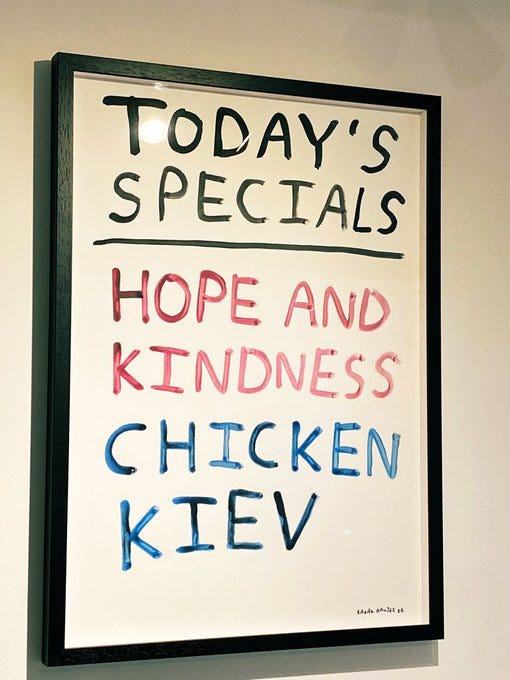 TODAY'S
SPECIALS
HOPE AND
KINDNESS
CHICKEN
KIEV